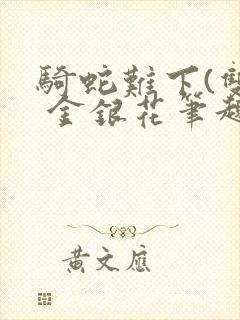 騎蛇難下(雙
金銀花筆趣
黃文應